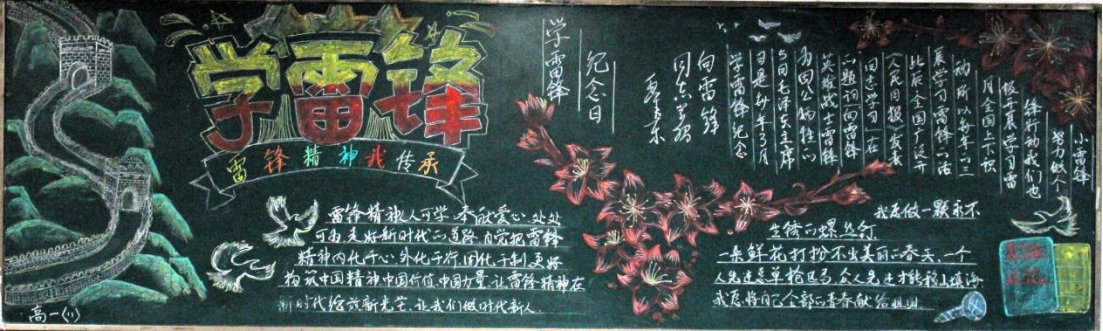 学雷锋
雷锋精神我传承
雷锋精神人人可学,奉献爱心,处处
可为,走好新时代的道路,自觉把雷锋
精神内化于心、外化于行、固化于制,更好
构筑中国精神中国价值中国力量,让雷锋精神在
新时代绽放新光芒,让我们做时代新人.
高一(1)
学雷锋
纪念日
向雷锋
同志学习
毛泽东
小雷锋
努力做个
锋行动我们也
极开展学习雷
月全国上下积
动所以每年的三
展学习雷锋的活
此后全国广泛开
《人民日报》发表
同志学习”在
的题词“向雷锋
英雄战士雷锋
为因公牺牲的
5日毛泽东主席
日是63年3月
学雷锋纪念
我愿做一颗永不
生锈的螺丝钉
一朵鲜花打扮不出美丽的春天,一个
人先进总单枪匹马,众人先进才能移山填海
我愿将自己全部的青春献给祖国